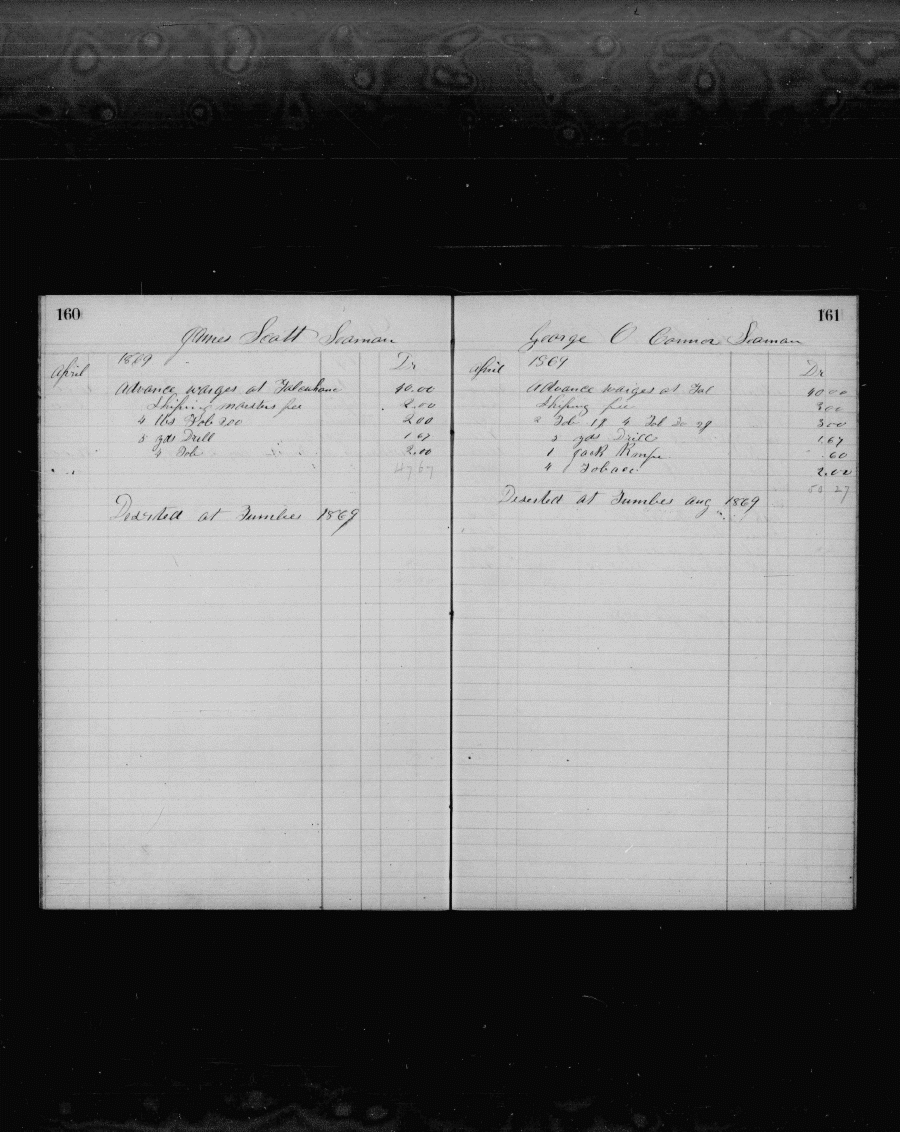 160
James Scott Seaman
1869
April Dr
Advance warges at Talcahano 40.00
Shiping masters fee 2.00
4 lbs Tob 200 2.00
5 yds Drill 1.67
4 Tob 2.00
47.67
Deserted at Tumbes 1869
161
George O Connor Seaman
April 1869 Dr
Advance warges at Tal 40.00
Shiping fee 3.00
2 Tob 1 4 Tob 3.00
5 yds Drill 1.67
1 Jack Knife .60
4 Tobacc 2.00
50 27
Deserted at Tumbes Aug 1869